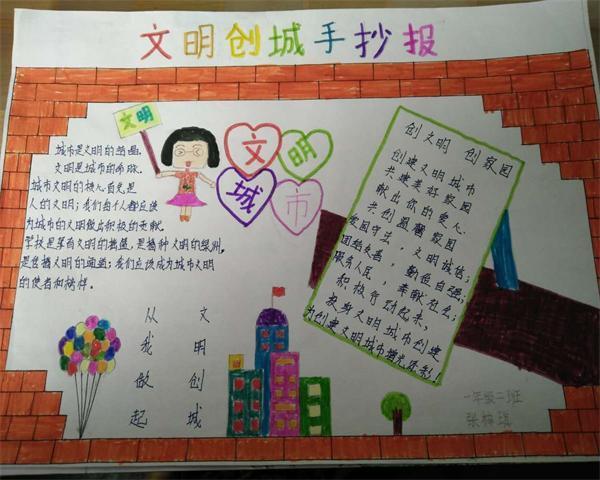 文明创城手抄报
文明
文明
城市
城市是文明的结晶,
文明是城市的
城市文明的核心首先是
人的文明;我们每个人都应该
为城市的文明做出积极的贡献.
学校是孕育文明的摇篮,是播种文明的绿洲,
是传播文明的通道;我们应该成为城市文明
的使者和榜样。
创文明 创家园
创建文明城市
共建美好家园
献出你的爱心
共创温馨家园
爱国守法,文明诚信;
团结友善,勤俭自强;
服务人民,奉献社会;
积极行动起来,
投身文明城市创建
为创建文明城市增光添彩!
从 文
我 明
做 创
起 城
一年级二班